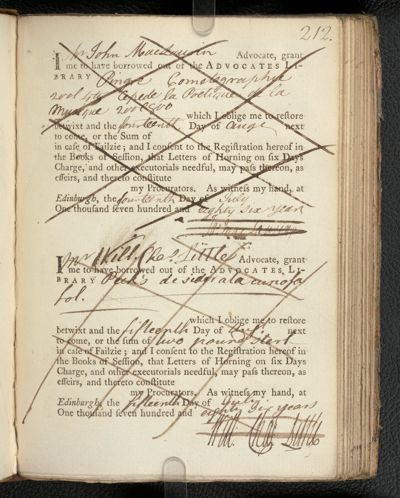 212.
I Mr John Maclaurin Advocate, grant
me to have borrowed out of the ADVOCATES LI-
BRARY Pingré Cometographie
2 vol 4to Cepede la Poetique de la
Musique 2 vol 8vo
which I oblige me to restore
betwixt and the fourteenth Day of next
to come, or the Sum of
in case of Failzie; and I consent to the Registration hereof in
the Books of Session, that Letters of Horning on six Days
Charge, and other executorials needful, may pass thereon, as
effeirs, and thereto constitute
my Procurators. As witness my hand, at
Edinburgh, the fourteenth Day of July
One thousand seven hundred and eighty six years
I Mr Will. Chas. Little Advocate, grant
me to have borrowed out of the ADVOCATES LI-
BRARY Peck's desiderata curiosa
fol.
which I oblige me to restore
betwixt and the fifteenth Day of next
to come, or the sum of two pound Sterl
in case of Failzie; and I consent to the Registration hereof in
the Books of Session, that Letters of Horning on six Days
Charge, and other executorials needful, may pass thereon, as
effeirs, and thereto constitute
my Procurators. As witness my hand, at
Edinburgh, the fifteenth Day of July
One thousand seven hundred and eighty six years
Will Chas Little